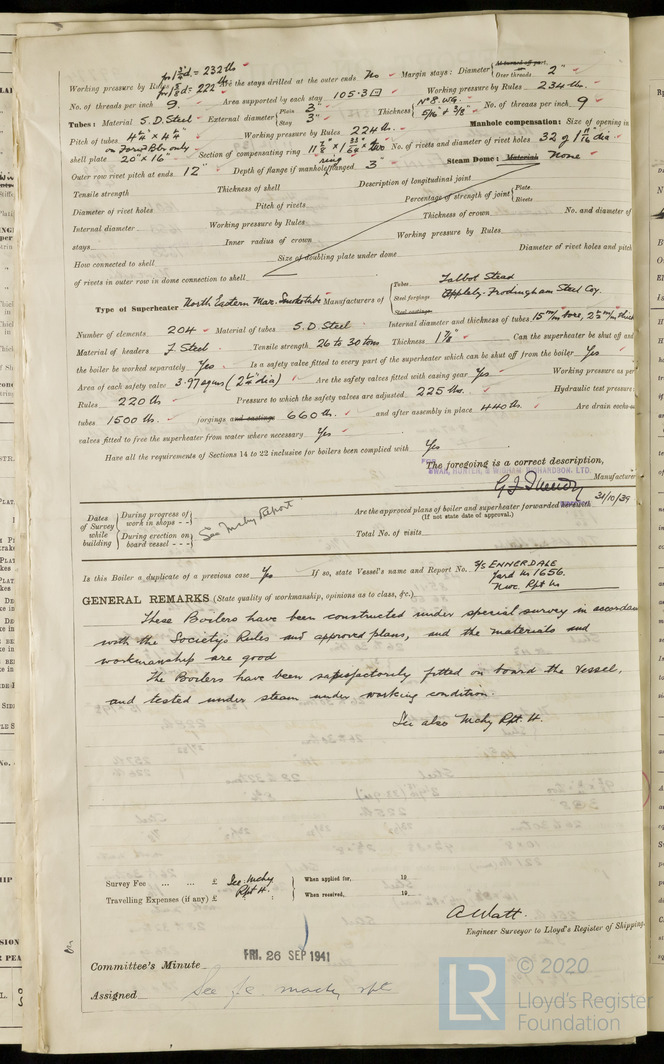 for 1 3/4"d. = 232 lbs
Working pressure by Rules for 1 5/8"d = 222 lbs Are the stays drilled at the outer ends No Margin stays: Diameter { At turned off part, Over threads 2"
No. of threads per inch 9. Area supported by each stay 105.3 □" Working pressure by Rules 234 lbs.
Tubes: Material S.D. Steel External diameter { Plain 3" Stay 3" Thickness { No 8. WG. 5/16 + 3/8" No. of threads per inch 9
Pitch of tubes 4¼" x 4¼" Working pressure by Rules 224 lbs. Manhole compensation: Size of opening in
shell plate 20" x 16" Section of compensating ring No. of rivets and diameter of rivet holes 32 of 1 11/16 dia
Outer row rivet pitch at ends 12" Depth of flange if manhole flanged 3" Steam Dome: Material None
Tensile strength Thickness of shell Description of longitudinal joint
Diameter of rivet holes Pitch of rivets Percentage of strength of joint { Plate Rivets
Internal diameter Working pressure by Rules Thickness of crown No. and diameter of
stays Inner radius of crown Working pressure by Rules
How connected to shell Size of doubling plate under dome Diameter of rivet holes and pitch
of rivets in outer row in dome connection to shell
Type of Superheater North Eastern Mar. Smoketube Manufacturers of { Tubes Talbot Stead Steel forgings Appleby-Frodingham Steel Coy. Steel castings
Number of elements 204 Material of tubes S.D. Steel Internal diameter and thickness of tubes 15 m/m bore, 2½ m/m thick
Material of headers F. Steel Tensile strength 26 to 30 tons Thickness 1⅞" Can the superheater be shut off and
the boiler be worked separately Yes Is a safety valve fitted to every part of the superheater which can be shut off from the boiler Yes
Area of each safety valve 3.97 sq ins (2¼" dia) Are the safety valves fitted with easing gear Yes Working pressure as per
Rules 220 lbs Pressure to which the safety valves are adjusted 225 lbs. Hydraulic test pressure
tubes 1500 lbs. forgings and castings 660 lbs. and after assembly in place 440 lbs. Are drain cocks or
valves fitted to free the superheater from water where necessary Yes
Have all the requirements of Sections 14 to 22 inclusive for boilers been complied with Yes
The foregoing is a correct description,
FOR SWAN, HUNTER, & WIGHAM RICHARDSON, LTD.
Manufacturer
31/10/39
Dates of Survey while building { During progress of work in shops - - During erection on board vessel - - - } See Mchy Report
Are the approved plans of boiler and superheater forwarded
(If not state date of approval.)
Total No. of visits
Is this Boiler a duplicate of a previous case Yes If so, state Vessel's name and Report No. S/S ENNERDALE
Yard No 1656.
Nwc. Rpt No
GENERAL REMARKS (State quality of workmanship, opinions as to class, &c.)
These Boilers have been constructed under special survey in accordan
with the Society's Rules and approved plans, and the materials and
workmanship are good
The Boilers have been satisfactorily fitted on board the Vessel,
and tested under steam under working condition.
See also Mchy Rpt. H.
Survey Fee ... ... £ See Mchy Rpt H. : When applied for, 19
Travelling Expenses (if any) £ : When received, 19
A Watt.
Engineer Surveyor to Lloyd's Register of Shipping.
Committee's Minute FRI. 26 SEP 1941
Assigned See f.e. machy rpt
© 2020
LR
Lloyd's Register
Foundation